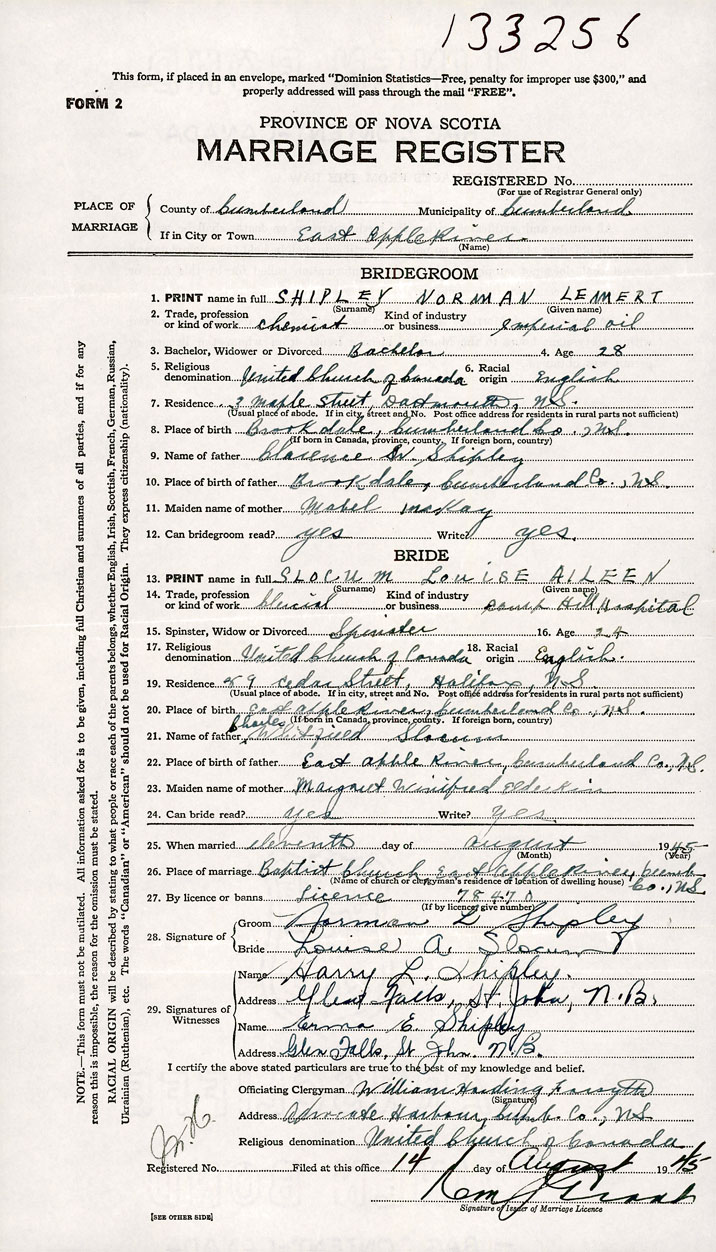 133256
This form, if placed in an envelope, marked "Dominion Statistics—Free, penalty for improper use $300," and
properly addressed will pass through the mail "FREE".
FORM 2
PROVINCE OF NOVA SCOTIA
MARRIAGE REGISTER
REGISTERED No.
(For use of Registrar General only)
PLACE OF MARRIAGE
County of Cumberland Municipality of Cumberland
If in City or Town East Apple River
(Name)
BRIDEGROOM
1. PRINT name in full SHIPLEY NORMAN LEMERT
(Surname) (Given name)
2. Trade, profession or kind of work chemist Kind of industry or business Imperial oil
3. Bachelor, Widower or Divorced Bachelor 4. Age 28
5. Religious denomination United Church of Canada 6. Racial origin English
7. Residence 3 Maple Street, Dartmouth, N.S.
(Usual place of abode. If in city, street and No. Post office address for residents in rural parts not sufficient)
8. Place of birth Brookdale, Cumberland Co., N.S.
(If born in Canada, province, county. If foreign born, country)
9. Name of father Clarence W. Shipley
10. Place of birth of father Brookdale, Cumberland Co., N.S.
11. Maiden name of mother Mabel McKay
12. Can bridegroom read? yes Write? yes.
BRIDE
13. PRINT name in full SLOCUM LOUISE AILEEN
(Surname) (Given name)
14. Trade, profession or kind of work Clerical Kind of industry or business Camp Hill Hospital
15. Spinster, Widow or Divorced Spinster 16. Age 24
17. Religious denomination United Church of Canada 18. Racial origin English.
19. Residence 59 Cedar Street, Halifax N.S.
(Usual place of abode. If in city, street and No. Post office address for residents in rural parts not sufficient)
20. Place of birth East Apple River, Cumberland Co., N.S.
(If born in Canada, province, county. If foreign born, country)
21. Name of father Charles Whitfield Slocum
22. Place of birth of father East Apple River, Cumberland Co., N.S.
23. Maiden name of mother Margaret Winifred Elderkin
24. Can bride read? yes Write? Yes
25. When married eleventh day of August 1945
(Month) (Year)
26. Place of marriage Baptist Church East Apple River, Cumb. Co., N.S.
(Name of church or clergyman's residence or location of dwelling house)
27. By licence or banns Licence 78470
(If by licence, give number)
28. Signature of
Groom Norman L. Shipley
Bride Louise A. Slocum
29. Signatures of Witnesses
Name Harry L. Shipley.
Address Glen Falls, St. John, N.B.
Name Erma E. Shipley
Address Glen Falls, St John. N.B.
I certify the above stated particulars are true to the best of my knowledge and belief.
Officiating Clergyman William Harding Forsyth
(Signature)
Address Advocate Harbour, Cumb. Co., N.S.
Religious denomination United Church of Canada
Registered No. Filed at this office 14 day of August 1945
Signature of Issuer of Marriage Licence
[SEE OTHER SIDE]
NOTE.—This form must not be mutilated. All information asked for is to be given, including full Christian and surnames of all parties, and if for any
reason this is impossible, the reason for the omission must be stated.
RACIAL ORIGIN will be described by stating to what people or race each of the parents belongs, whether English, Irish, Scottish, French, German, Russian,
Ukrainian (Ruthenian), etc. The words "Canadian" or "American" should not be used for Racial Origin. They express citizenship (nationality).